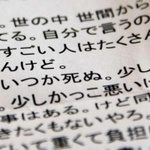 。世の中 世間から
てる。自分で言うの
すごい人はたくさん
んけど。
いつか死ぬ。少し
少しかっこ悪いけ
事はある。けど同
きたくもないやろ。
いて重くて負担に